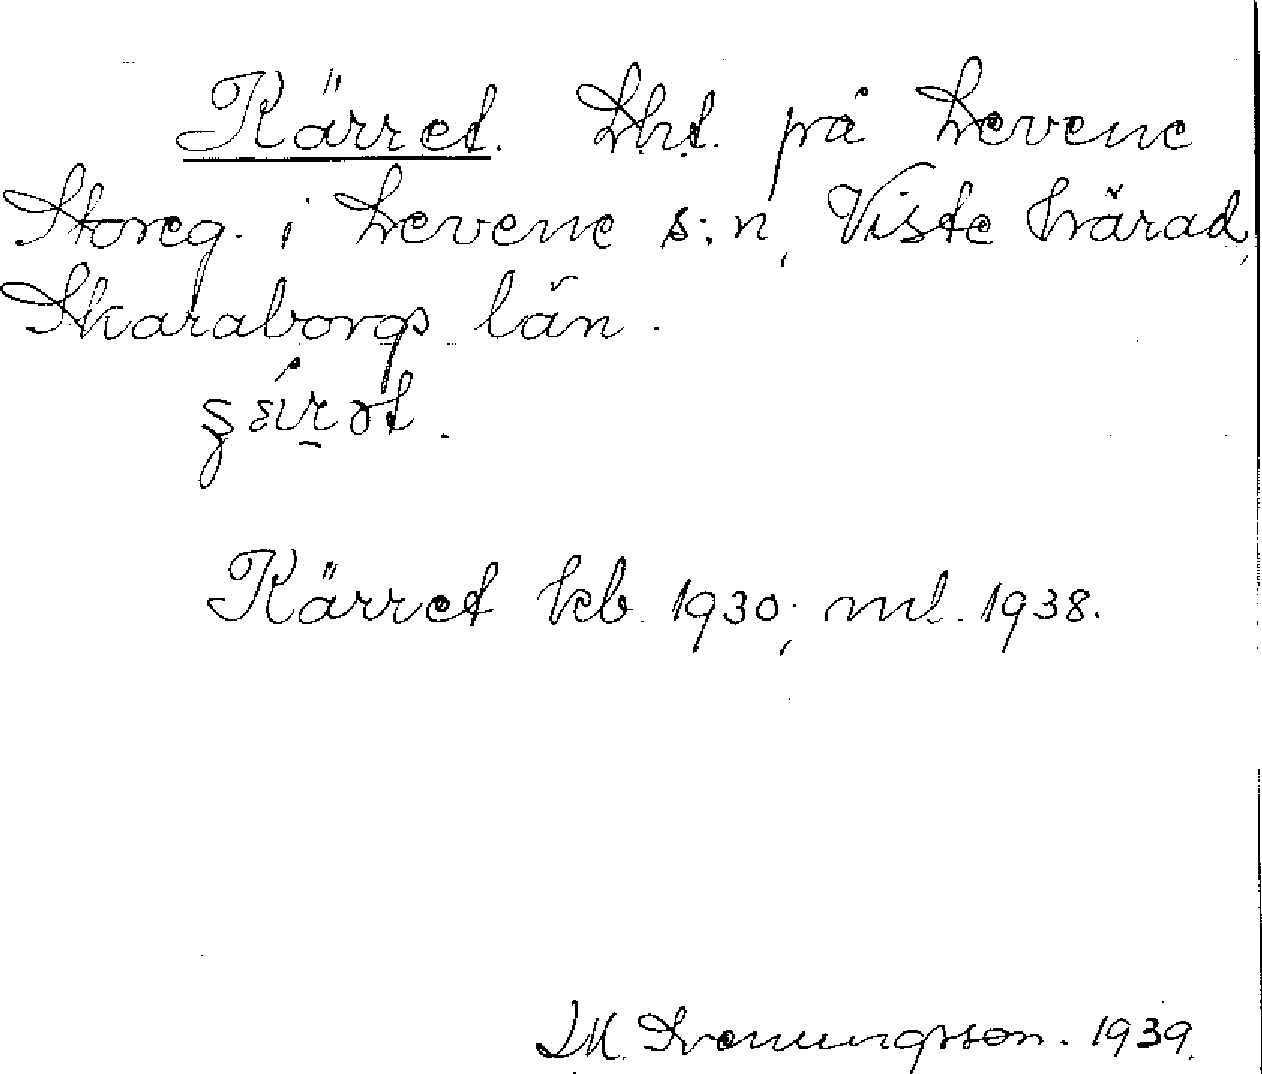 Kärret. Lht. på Levene
Storeg. i Levene s:n, Viste härad,
Skaraborgs län.
Kärret kb. 1930; ml. 1938.
1939.